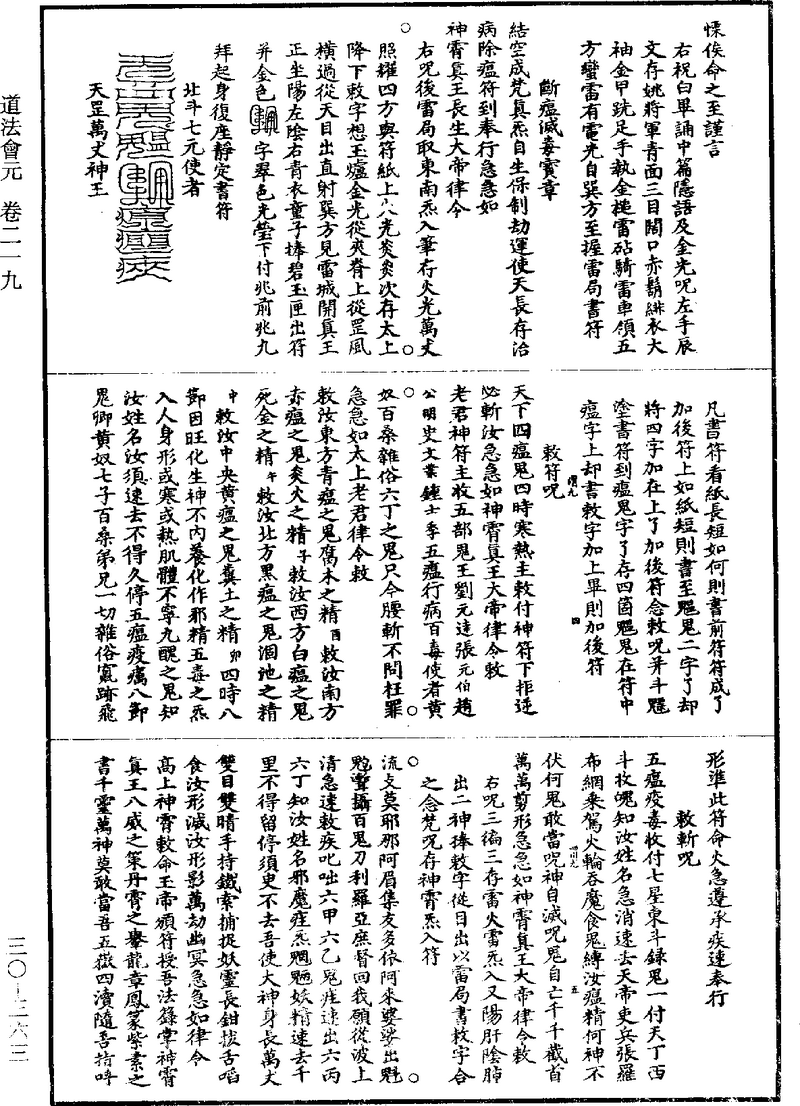 慄俟命之至謹言
右祝白畢誦中篇隱語及金光呪左手辰
文存姚將軍青面三目闊口赤鬍緋衣大
袖金甲跣足手執金槌雷砧騎雷車領五
方蠻雷有電光自巽方至握雷局書符
斷瘟滅毒寶章
結空成梵真炁自生保制劫運使天長存治
病除瘟符到奉行急急如
神霄真王長生大帝律令
右呪後雷局取東南炁入筆存火光萬丈
照耀四方與符紙上火光炎炎次存太上
降下敕字想玉爐金光從夾脊上從罡風
橫過從天目出直射巽方見雷城開真王
正坐陽左陰右青衣童子捧碧玉匣出符
并金色字翠色光瑩下付兆前兆九
拜起身復座靜定書符
北斗七元使者
天罡萬丈神王
凡書符看紙長短如何則書前符符成了
加後符上如紙短則書至魈鬼二字了却
將四字加在上了加後符念敕呪并斗魒
塗書符到瘟鬼字了存四箇魈鬼在符中
瘟字上却書敕字加上畢則加後符
敕符呪
天下四瘟鬼四時寒熱主敕付神符下拒逆
必斬汝急急如神霄真王大帝律令敕
老君神符主收五部鬼王劉元達張元伯趙
公明史文業鍾士季五瘟行病百毒使者黃
奴百桑雜俗六丁之鬼只今腰斬不問枉罪
急急如太上老君律令敕
敕汝東方青瘟之鬼腐木之精酉敕汝南方
赤瘟之鬼炎火之精子敕汝西方白瘟之鬼
死金之精午敕汝北方黑瘟之鬼涸池之精
中敕汝中央黃瘟之鬼糞土之精卯四時八
節因旺化生神不內養化作邪精五毒之炁
入人身形或寒或熱肌體不寧九醜之鬼知
汝姓名汝須速去不得久停五瘟疫癘八節
鬼卿黃奴七子百桑弟兄一切雜俗竄跡飛
形準此符命火急遵承疾速奉行
敕斬呪
五瘟疫毒收付七星東斗錄鬼一付天丁西
斗收魄知汝姓名急消速去天帝吏兵張羅
布網乘駕火輪吞魔食鬼縛汝瘟精何神不
伏何鬼敢當呪神自滅呪鬼自亡千千截首
萬萬剪形急急如神霄真王大帝律令敕
右呪三徧三存雷火雷炁入又陽肝陰肺
出二神捧敕字從目出以雷局書敕字合
之念梵呪存神霄炁入符
流攴莫耶那阿眉集友多依阿米婆娑出魁
魁聾攝百鬼刀利羅亞庶督回我願從波上
清急速敕疾叱咄六甲六乙鬼疰速出六丙
六丁知汝姓名邪魔疰炁魍魎妖精速去千
里不得留停須臾不去吾使大神身長萬丈
雙目雙睛手持鐵索捕捉妖靈長鉗拔舌啗
食汝形滅汝形影萬劫幽冥急急如律令
高上神霄敕命玉帝頒符授吾法籙掌神霄
真王八威之策丹霄之舉龍章鳳篆紫素之
書千靈萬神莫敢當吾五嶽四瀆隨吾指呼
道法會元 卷二一九
三〇-三六三